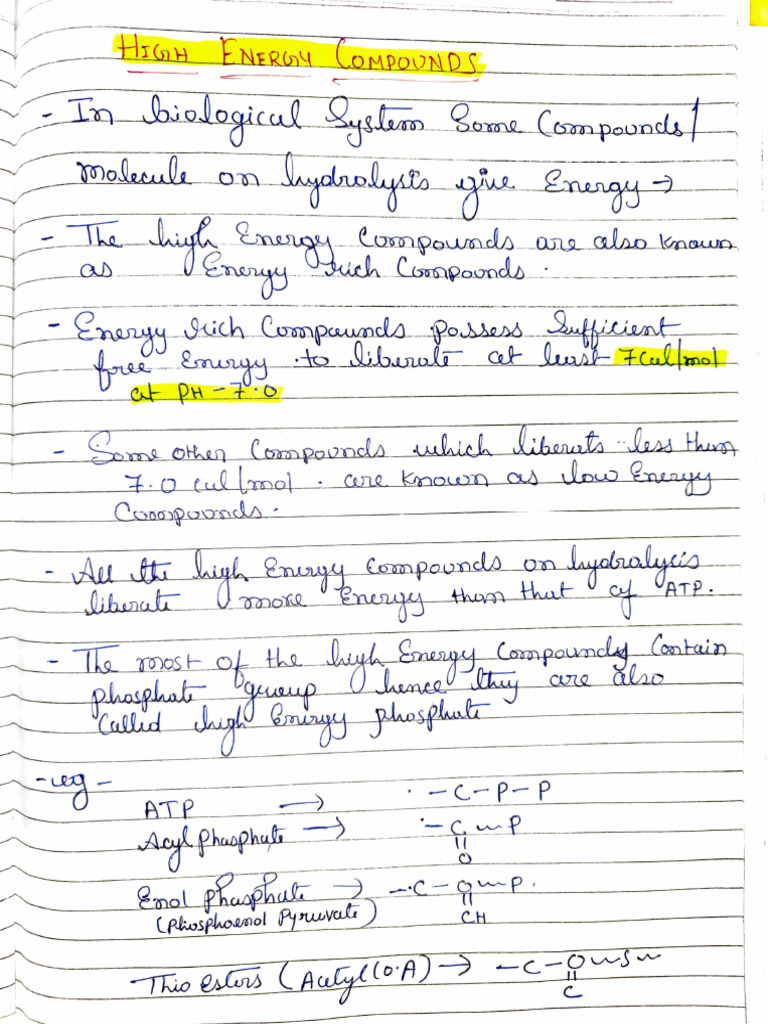 HIGH ENERGY COMPOUNDS
- In biological System Some Compounds/
molecule on hydrolysis give Energy →
- The high Energy Compounds are also known
as Energy rich Compounds.
- Energy rich Compounds possess Sufficient
free Energy to liberate at least 7Cal/mol
at PH - 7.0
- Some other Compounds which liberats less than
7.0 cal/mol. are known as low Energy
Compounds.
- All the high Energy Compounds on hydralysis
liberate more Energy than that of ATP.
- The most of the high Energy Compounds Contain
phosphate group hence they are also
Called high Energy phosphate
- eg -
ATP → - C - P - P
Acyl phasphate → - C ~ P
||
O
Enol phasphate → - C - O ~ P.
(Phosphoenol Pyruvate) ||
CH
Thio esters (Acetyl CO.A) → - C - O ~ S ~
||
C